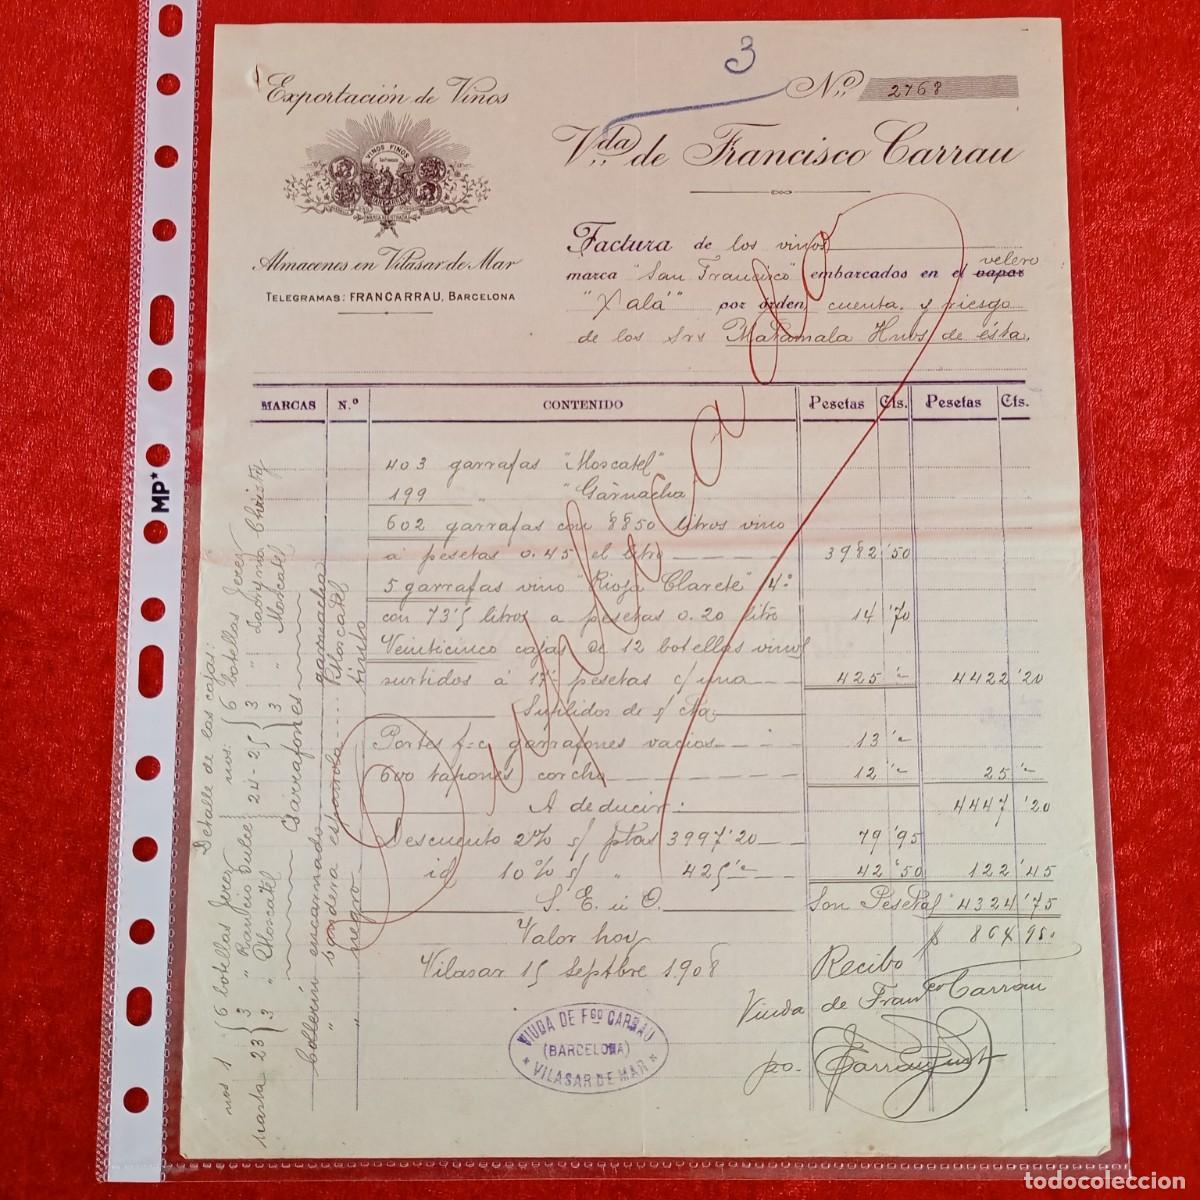 3
Exportación de Vinos
Nº 2768
VINOS FINOS
MARCA REGISTRADA
Vda de Francisco Carrau
Almacenes en Vilasar de Mar
TELEGRAMAS: FRANCARRAU, BARCELONA
Factura de los vinos
marca "San Francisco" embarcados en el vapor velero
"Xalá" por órden, cuenta y riesgo
de los Srs Matamala Hnos de ésta.
MARCAS N.º CONTENIDO Pesetas Cts. Pesetas Cts.
403 garrafas "Moscatel"
199 " "Garnacha
602 garrafas con 8850 litros vino
á pesetas 0.45 el litro 3982'50
5 garrafas vino "Rioja Clarete" 4º
con 73'5 litros a pesetas 0.20 litro 14'70
Veinticinco cajas de 12 botellas vinos
surtidos á 17'- pesetas c/una 425'- 4422'20
Surtidos de s/ Cta,
Portes f=c garrafones vacios 13'-
600 tapones corcho 12'- 25'-
4447'20
A deducir:
Descuento 2% s/ ptas 3997'20 79'95
id 10% s/ " 425'- 42'50 122'45
S. E. ú O. Son Pesetas 4324'75
Valor hoy $ 864'95
Vilasar 15 Septbre 1908
Recibo
Viuda de Franco Carrau
po.
Duplicada
VIUDA DE Fco CARRAU
(BARCELONA)
* VILASAR DE MAR *
Detalle de las cajas:
nos 1 hasta 23
6 botellas Jerez
3 " Rancio Dulce
3 " Moscatel
nos: 24-25
6 botellas Jerez
3 " Lacryma Christy
3 " Moscatel
Garrafones
bollerin encarnado garnacha
" bandera española Moscatel
" negro tinto
MP*
todocoleccion